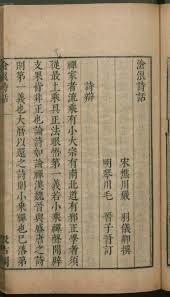 滄浪詩話
宋樵川嚴 羽儀卿撰
明琴川毛 晉子晉訂
詩辯
禪家者流乘有小大宗有南北道有邪正學者須
從最上乘具正法眼悟第一義若小乘禪聲聞辟
支果皆非正也論詩如論禪漢魏晉與盛唐之詩
則第一義也大曆以還之詩則小乘禪也已落第
滄浪詩話